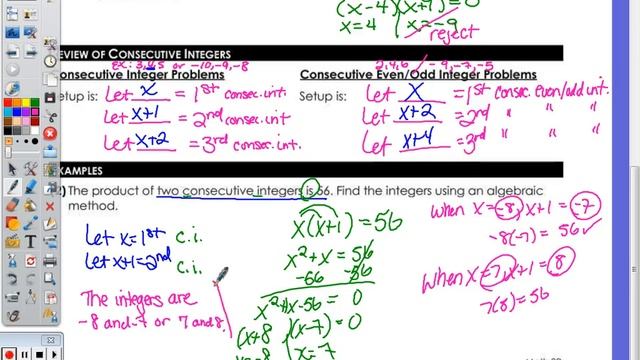 (x-4)(x+9)=0
x=4 x=-9
reject
REVIEW OF CONSECUTIVE INTEGERS
ex: 3,4,5 or -10,-9,-8
2,4,6 -9,-7,-5
Consecutive Integer Problems
Consecutive Even/Odd Integer Problems
Setup is: Let x = 1st consec. int.
Let x+1 = 2nd consec. int
Let x+2 = 3rd consec. int.
Setup is: Let x = 1st consec. even/odd int.
Let x+2 = 2nd " " "
Let x+4 = 3rd " " "
EXAMPLES
2) The product of two consecutive integers is 56. Find the integers using an algebraic
method.
Let x = 1st c.i.
Let x+1 = 2nd c.i.
The integers are
-8 and -7 or 7 and 8.
x(x+1)=56
x²+x=56
-56 -56
x²+1x-56=0
(x+8)(x-7)=0
x=7
when x=-8, x+1=-7
-8(-7)=56✓
when x=7, x+1=8
7(8)=56